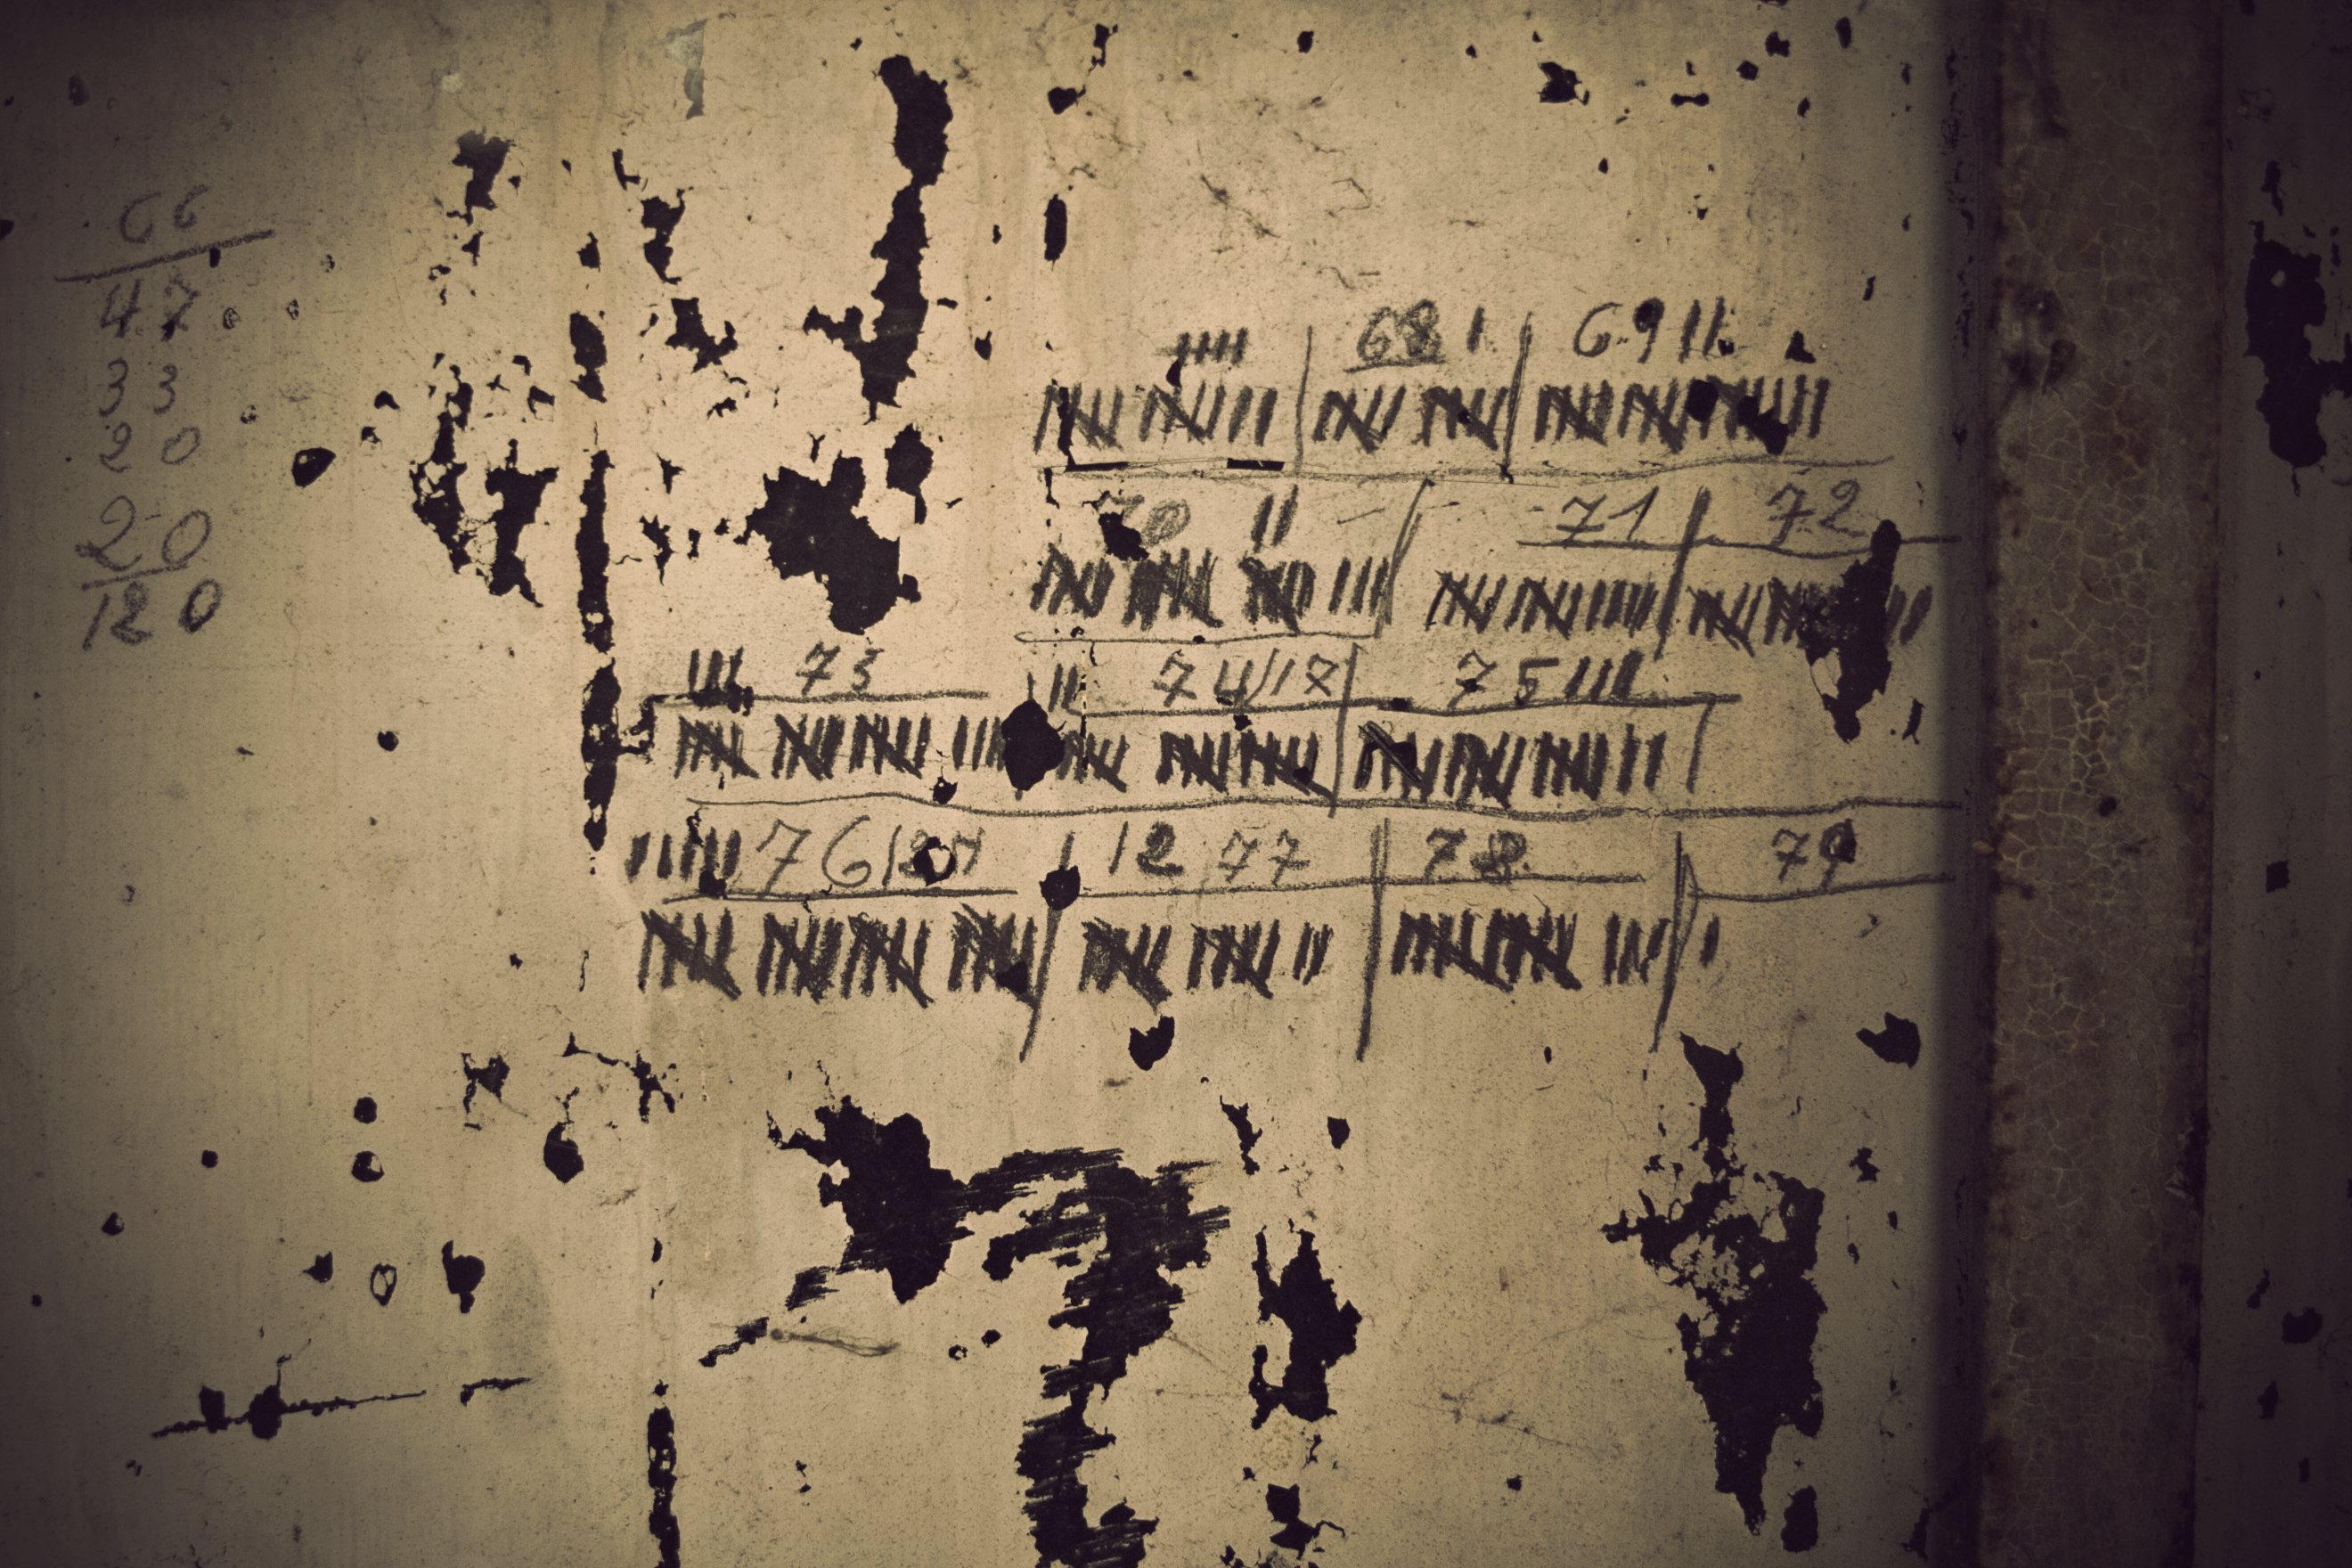 66
47
33
20
20
120
68 69
70 71 72
73 74 17 75
76 12 77 78 79